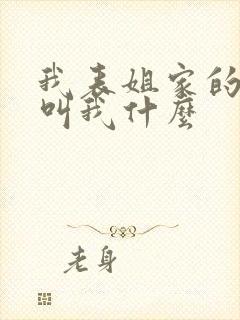 我表姐家的
叫我什麼
老身